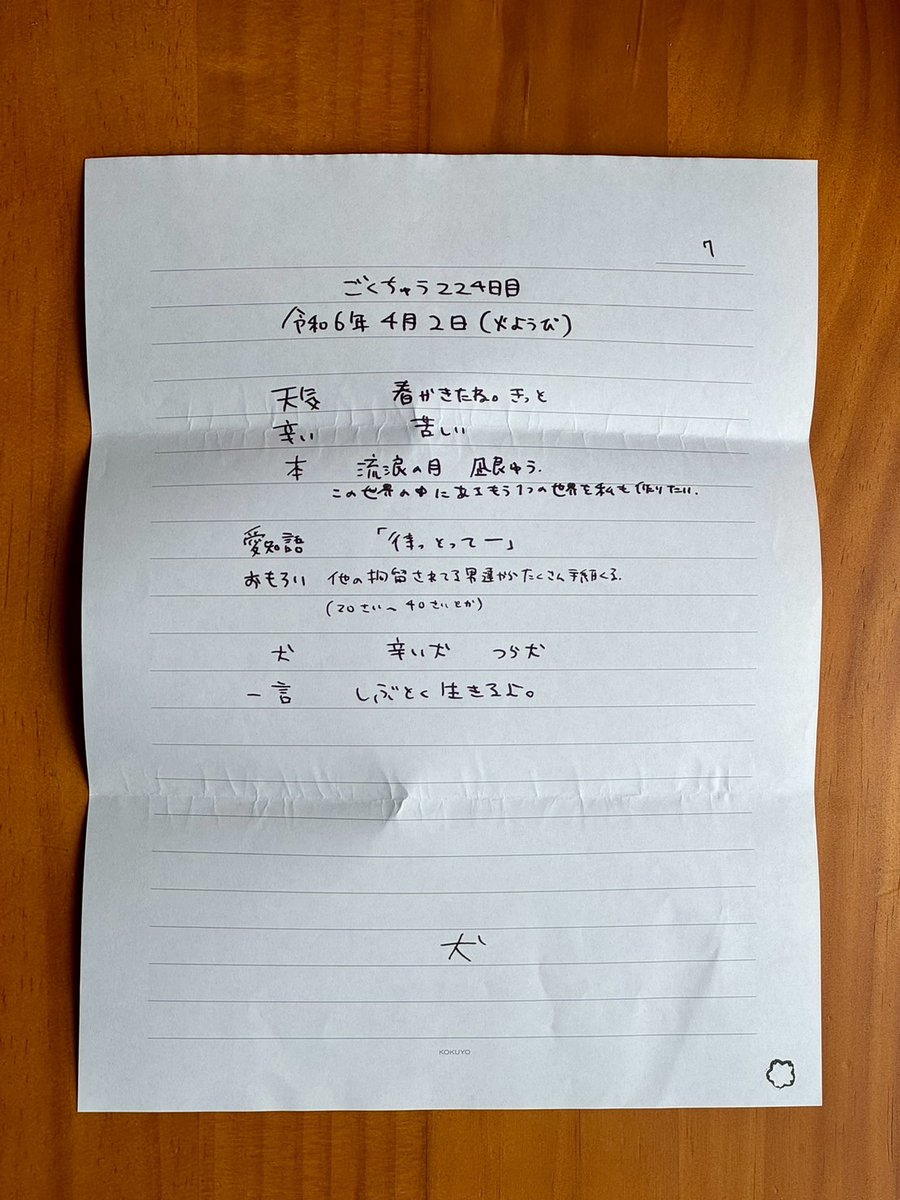 7
ごくちゅう224日目
令和6年 4月2日(火ようび)
天気 春がきたね。きっと
辛い 苦しい
本 流浪の月 凪良ゆう.
この世界の中にあるもう1つの世界を私も作りたい.
愛知語 「待っとってー」
おもろい 他の拘留されてる男達からたくさん手紙くる.
(20さい〜40さいとか)
犬 辛い犬 つら犬
一言 しぶとく生きるよ。
犬
KOKUYO